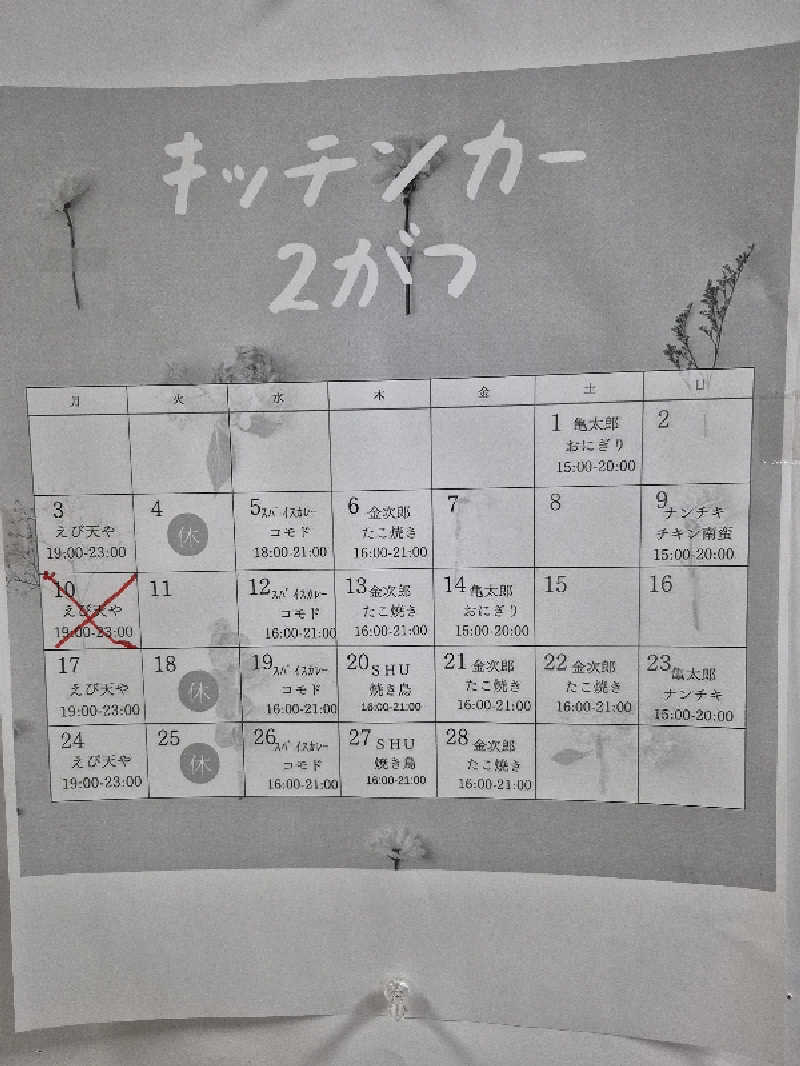 キッチンカー
2がつ
月 火 水 木 金 土 日
1 亀太郎
おにぎり
15:00-20:00
2
3
えび天や
19:00-23:00
4
休
5 スパイスカレー
コモド
18:00-21:00
6 金次郎
たこ焼き
16:00-21:00
7
8
9
ナンチキ
チキン南蛮
15:00-20:00
10
えび天や
19:00-23:00
11
12 スパイスカレー
コモド
16:00-21:00
13 金次郎
たこ焼き
16:00-21:00
14 亀太郎
おにぎり
15:00-20:00
15
16
17
えび天や
19:00-23:00
18
休
19 スパイスカレー
コモド
16:00-21:00
20 SHU
焼き鳥
16:00-21:00
21 金次郎
たこ焼き
16:00-21:00
22 金次郎
たこ焼き
16:00-21:00
23 亀太郎
ナンチキ
15:00-20:00
24
えび天や
19:00-23:00
25
休
26 スパイスカレー
コモド
16:00-21:00
27 SHU
焼き鳥
16:00-21:00
28 金次郎
たこ焼き
16:00-21:00